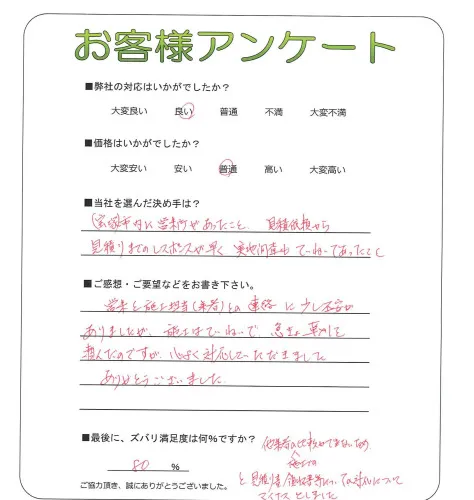 お客様アンケート
■弊社の対応はいかがでしたか？
大変良い 良い 普通 不満 大変不満
■価格はいかがでしたか？
大変安い 安い 普通 高い 大変高い
■当社を選んだ決め手は？
宝塚市内に営業所があったこと、見積依頼から
見積りまでのレスポンスが早く 実地調査もていねいであったこと
■ご感想・ご要望などをお書き下さい。
営業と施工担当(業者)との連絡に少し不安が
ありましたが、施工はていねいで、急きょ草刈を
頼んだのですが、心よく対応していただきました
ありがとうございました.
■最後に、ズバリ満足度は何%ですか？
他業者の比較ができないため
80 %
と、見積り書/領収書等についての対応について
ご協力頂き、誠にありがとうございました。
マイナスとしました